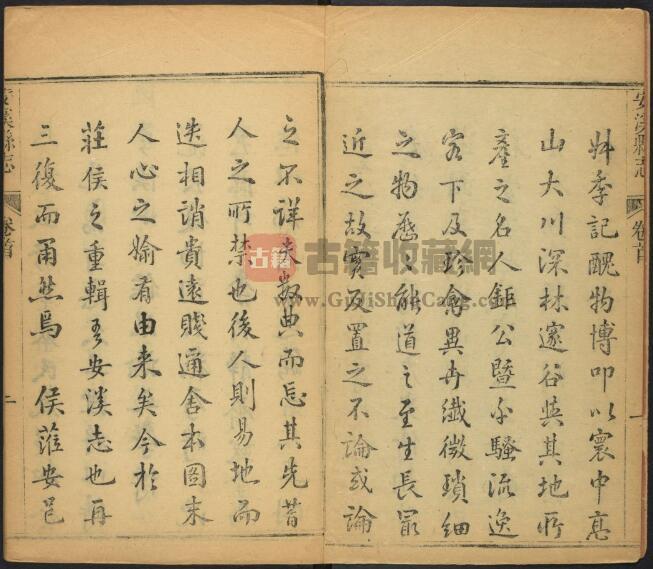 安溪縣志 卷首 一
季記醜物博叩以寰中
山大川深林邃谷與其地所
產之名人鉅公暨騷流逸
客下及珍禽異卉纖微瑣細
之物能道之至生長最
近之故實反置之不論或論
之不詳夫數典而忘其先昔
人之所禁也後人則易地而
迭相誚貴遠賤邇舍本圖末
人心之媮有由来矣今於
莊侯之重輯吾安溪志也再
三復而甬然焉 侯蒞安邑
安溪縣志 卷首 二
古籍 古籍收藏網
www.GuJiShouCang.com